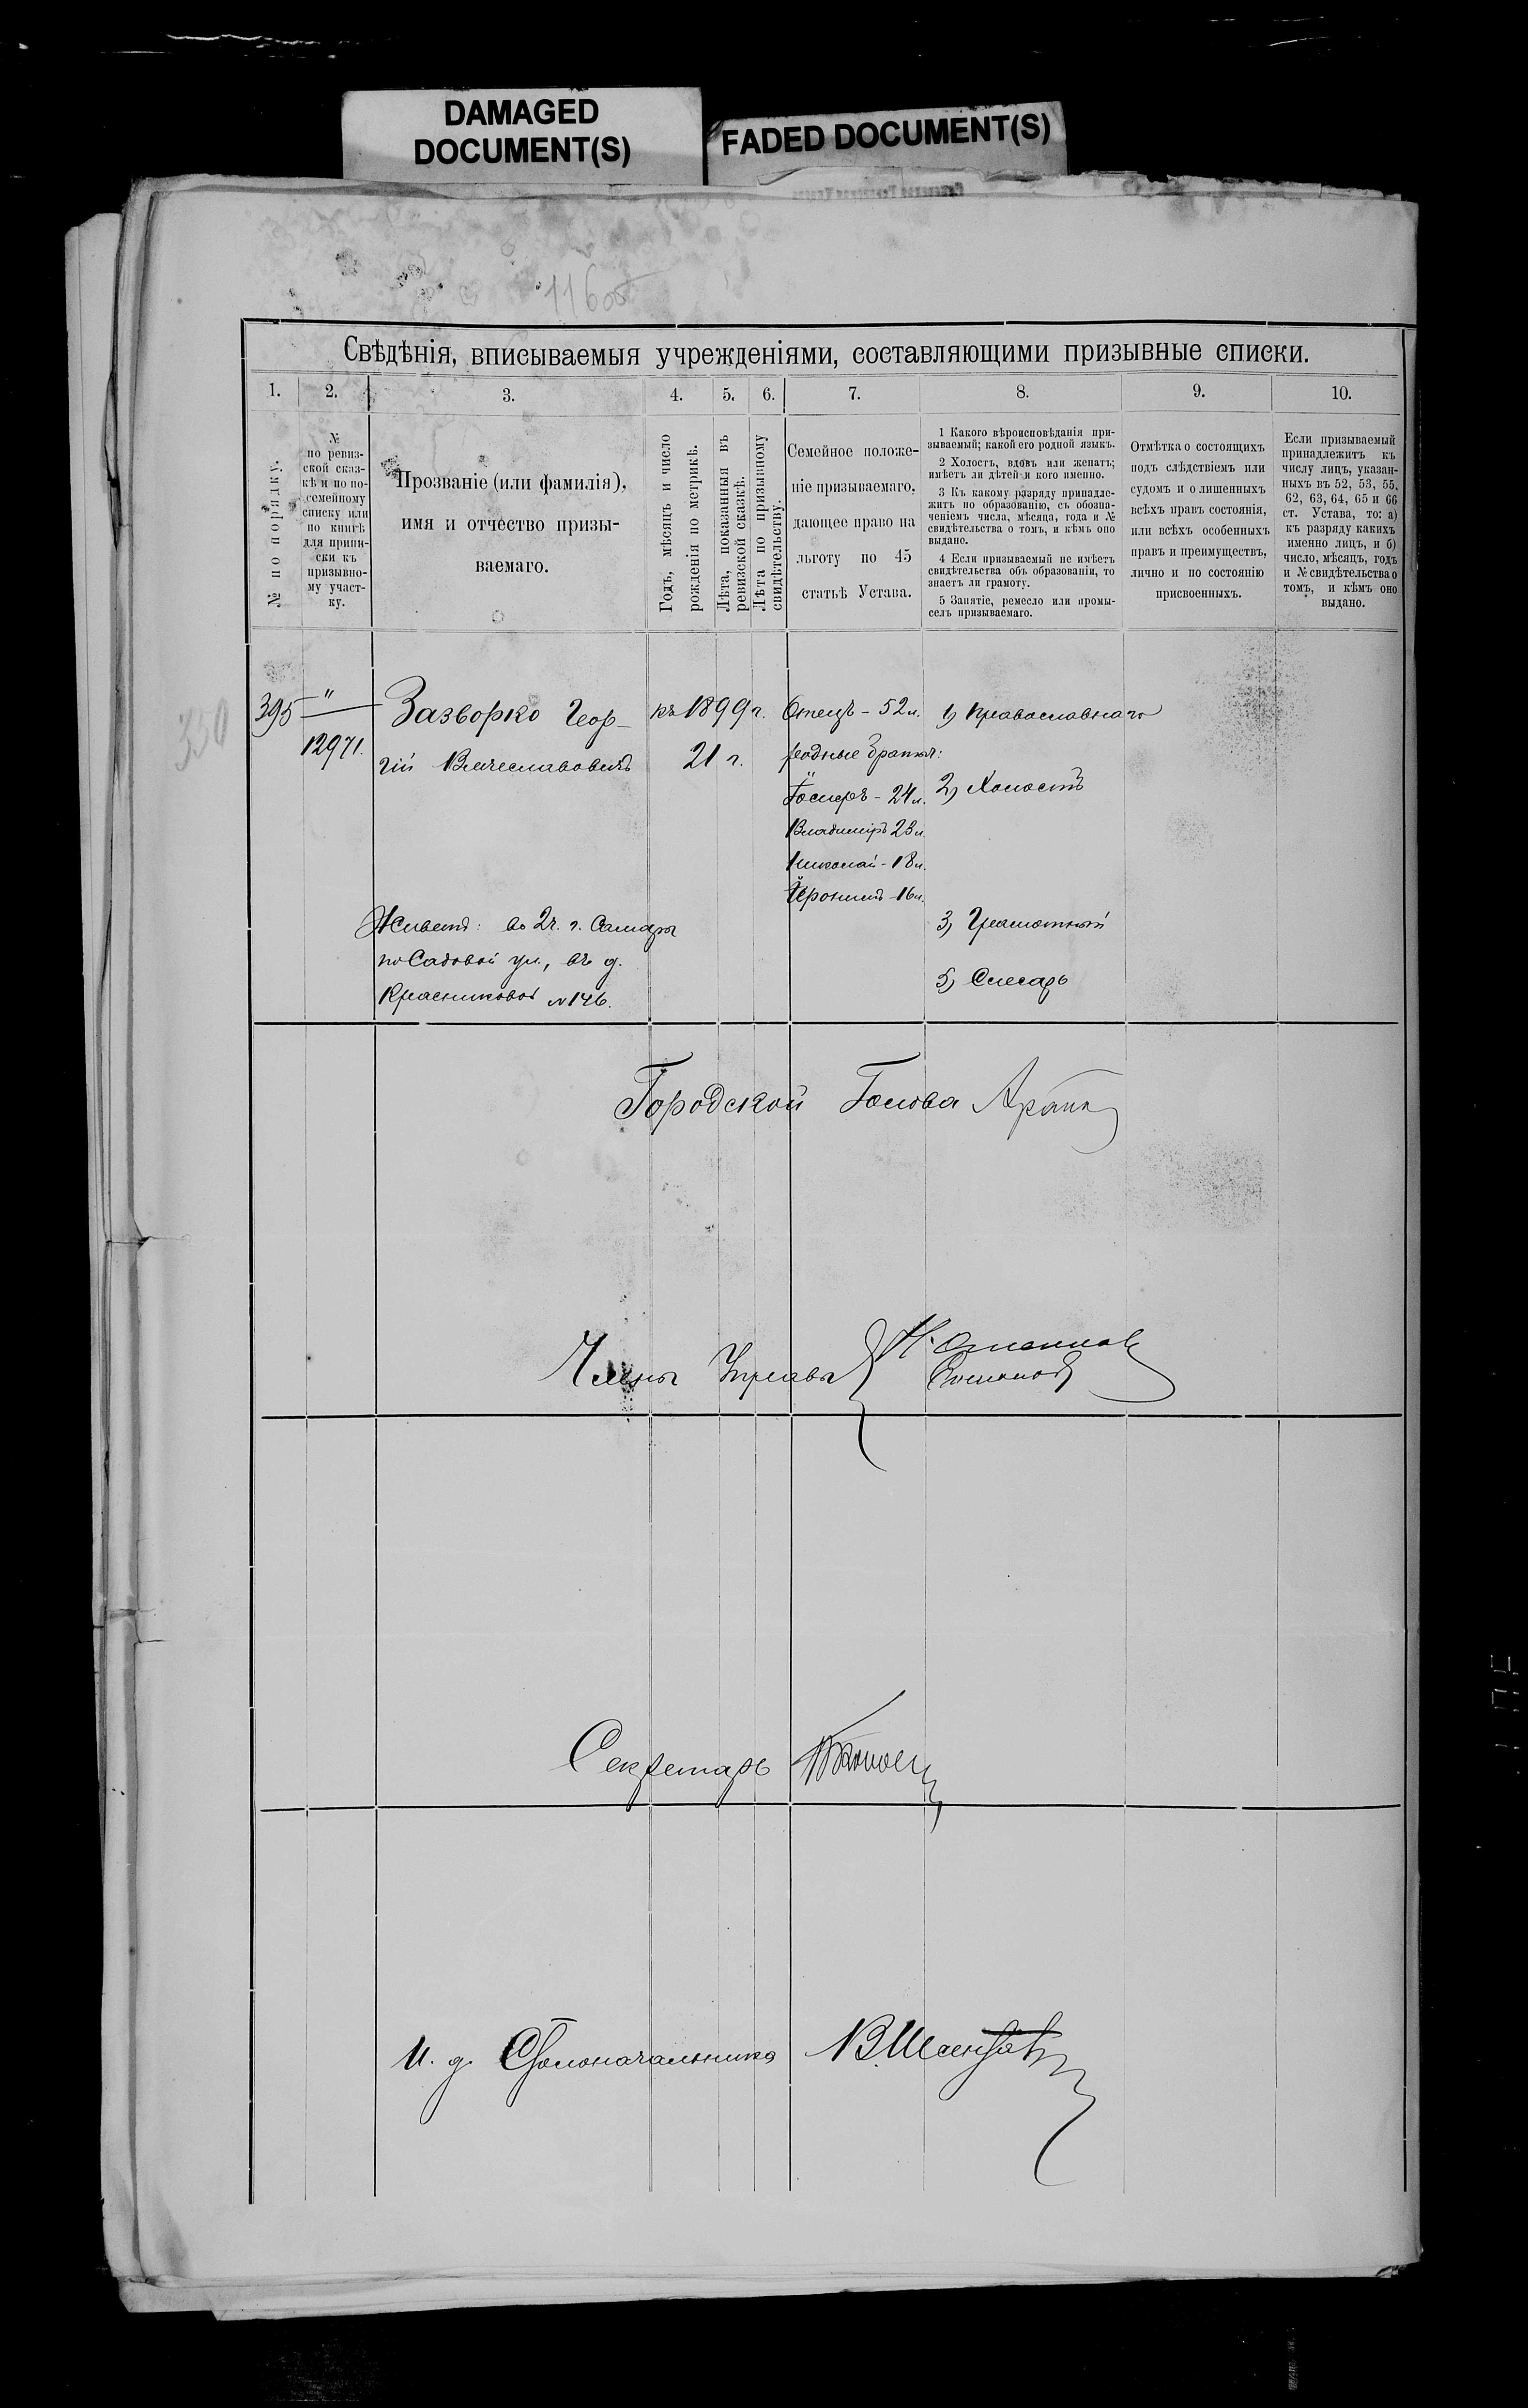 DAMAGED
DOCUMENT(S)
FADED DOCUMENT(S)
11605
Свѣдѣнія, вписываемыя учрежденіями, составляющими призывные списки.
1.
2.
3.
4.
5.
6.
7.
8.
9.
10.
№ по порядку.
№
по ревиз-
ской сказ-
кѣ и по по-
семейному
списку или
по книгѣ
для припи-
ски къ
призывно-
му участ-
ку.
Прозваніе (или фамилія),
имя и отчество призы-
ваемаго.
Годъ, мѣсяцъ и число
рожденія по метрикѣ.
Лѣта, показанныя въ
ревизской сказкѣ.
Лѣта по призывному
свидѣтельству.
Семейное положе-
ніе призываемаго,
дающее право на
льготу по 45
статьѣ Устава.
1 Какого вѣроисповѣданія при-
зываемый; какой его родной языкъ.
2 Холостъ, вдовъ или женатъ;
имѣетъ ли дѣтей и кого именно.
3 Къ какому разряду принадле-
житъ по образованію, съ обозна-
ченіемъ числа, мѣсяца, года и №
свидѣтельства о томъ, и кѣмъ оно
выдано.
4 Если призываемый не имѣетъ
свидѣтельства объ образованіи, то
знаетъ ли грамоту.
5 Занятіе, ремесло или промы-
селъ призываемаго.
Отмѣтка о состоящихъ
подъ слѣдствіемъ или
судомъ и о лишенныхъ
всѣхъ правъ состоянія,
или всѣхъ особенныхъ
правъ и преимуществъ,
лично и по состоянію
присвоенныхъ.
Если призываемый
принадлежитъ къ
числу лицъ, указан-
ныхъ въ 52, 53, 55,
62, 63, 64, 65 и 66
ст. Устава, то: а)
къ разряду какихъ
именно лицъ, и б)
число, мѣсяцъ, годъ
и № свидѣтельства о
томъ, и кѣмъ оно
выдано.
350
395
"
12971.
Зазворко Геор-
гій Вячеславовичъ
Живетъ: во 2ч. г. Самары
по Садовой ул., въ д.
Красниковой № 146.
къ 1899 г.
21 г.
Отецъ - 52 л.
родные братья:
- 24 л.
Владиміръ 23 л.
Николай - 18 л.
Іеронимъ - 16 л.
1) Православнаго
2) Холостъ
3) Грамотный
5) Слесарь
Городской Голова
Члены Управы
Секретарь
И. д. Столоначальника